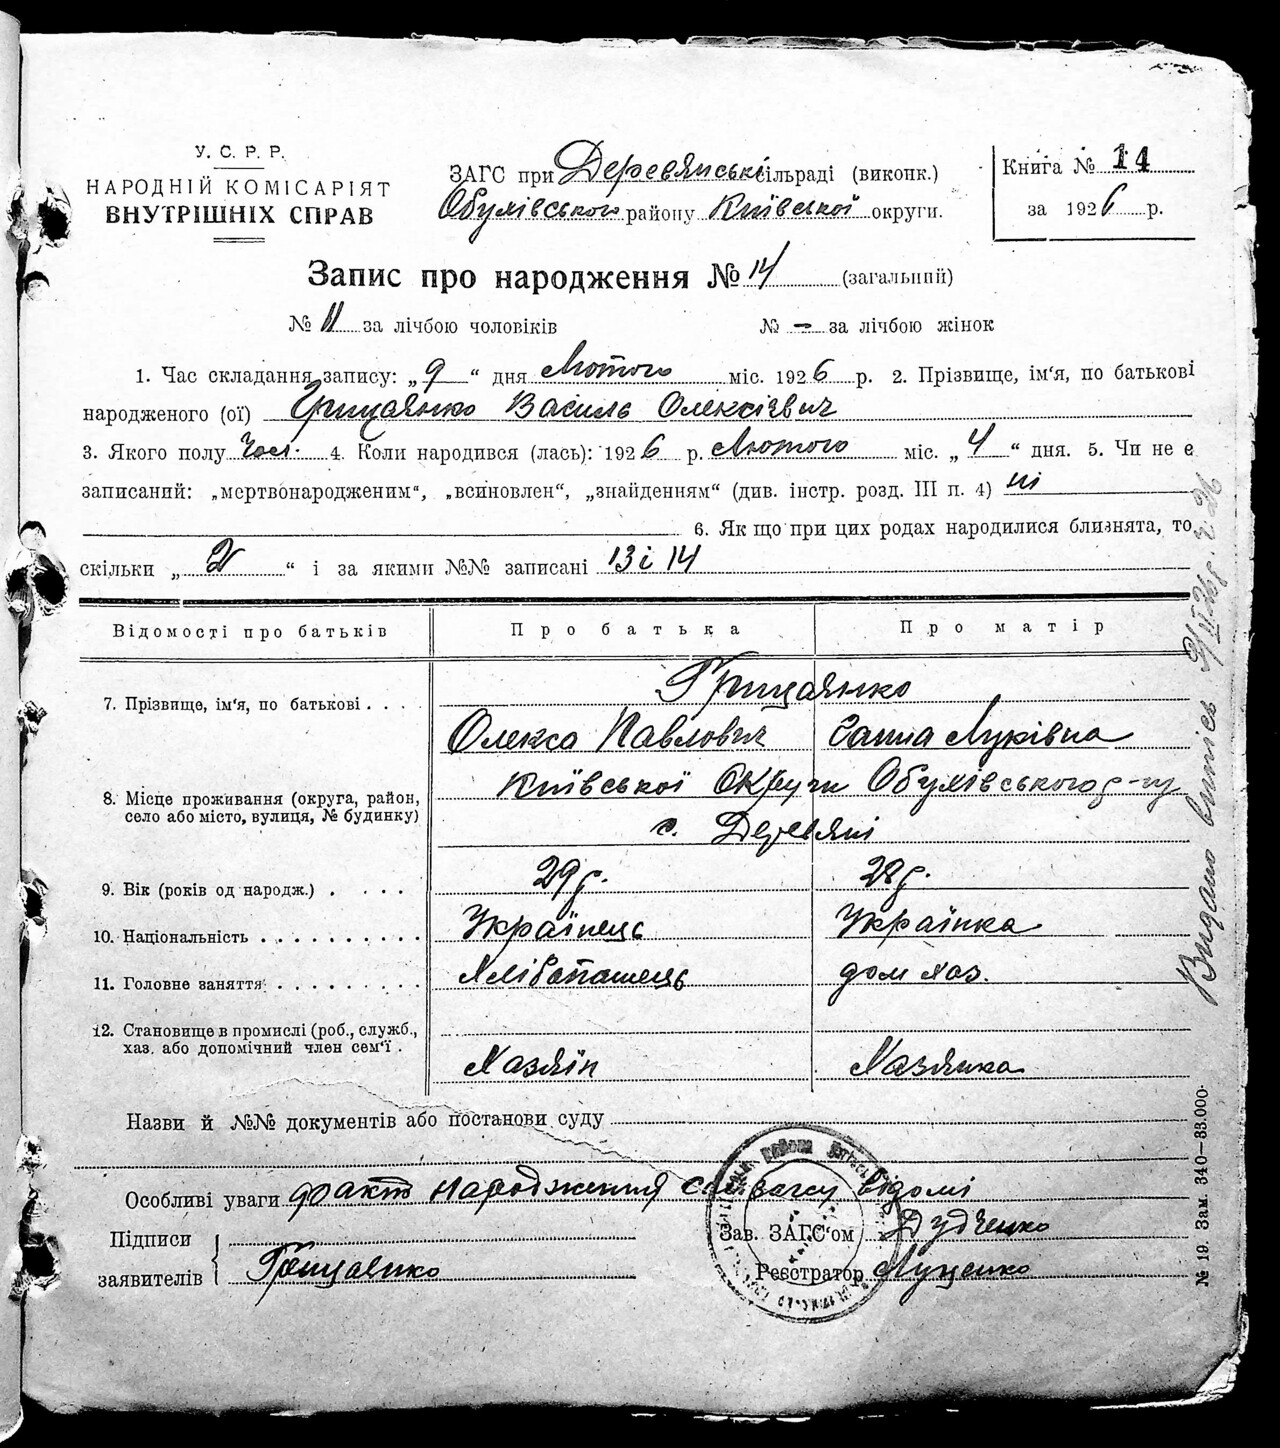 У. С. Р. Р.
НАРОДНІЙ КОМІСАРІЯТ
ВНУТРІШНІХ СПРАВ
ЗАГС при Деревянські сільраді (виконк.)
Обухівського району Київської округи.
Книга № 14
за 1926 р.
Запис про народження № 14 (загальний)
№ 11 за лічбою чоловіків № – за лічбою жінок
1. Час складання запису: „9“ дня Лютого міс. 1926 р. 2. Прізвище, ім'я, по батькові
народженого (ої) Грицаянко Василь Олексієвич
3. Якого полу Чол. 4. Коли народився (лась): 1926 р. Лютого міс. „4“ дня. 5. Чи не є
записаний: „мертвонародженим“, „всиновлен“, „знайденням“ (див. інстр. розд. III п. 4) ні
6. Як що при цих родах народилися близнята, то
скільки „2“ і за якими №№ записані 13 і 14
Відомості про батьків Про батька Про матір
7. Прізвище, ім'я, по батькові . . . . Грицаянко
Олекса Павлович Ганна Луківна
8. Місце проживання (округа, район, село або місто, вулиця, № будинку) Київської Округи Обухівського р-ну
с. Деревяні
9. Вік (років од народж.) . . . . 29 р. 28 р.
10. Національність . . . . . . . . . . Українець Українка
11. Головне заняття . . . . . . . . . Хлібопашець дом хоз.
12. Становище в промислі (роб., служб.,
хаз. або допомічний член сем'ї . Хазяїн Хазяйка
Назви й №№ документів або постанови суду
Особливі уваги факт народження сільраді відомі
Підписи
заявителів Грицаянко
Зав. ЗАГС'ом Дудченко
Реєстратор Луценко
Видано випис
№ 19. Зам. 340—33.000.